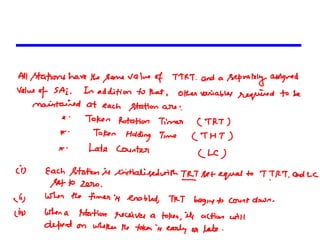 All stations have the same value of TTRT. and a seprately assigned
value of SAi. In addition to that, other variables required to be
maintained at each station are:
* Token Rotation Timer (TRT)
* Token Holding Time (THT)
* Late Counter (LC)
(i) Each station is initialised with TRT set equal to TTRT, and LC
set to zero.
(ii) When the timer is enabled, TRT begins to count down.
(iii) When a station receives a token, its action will
depend on whether the token is early or late.